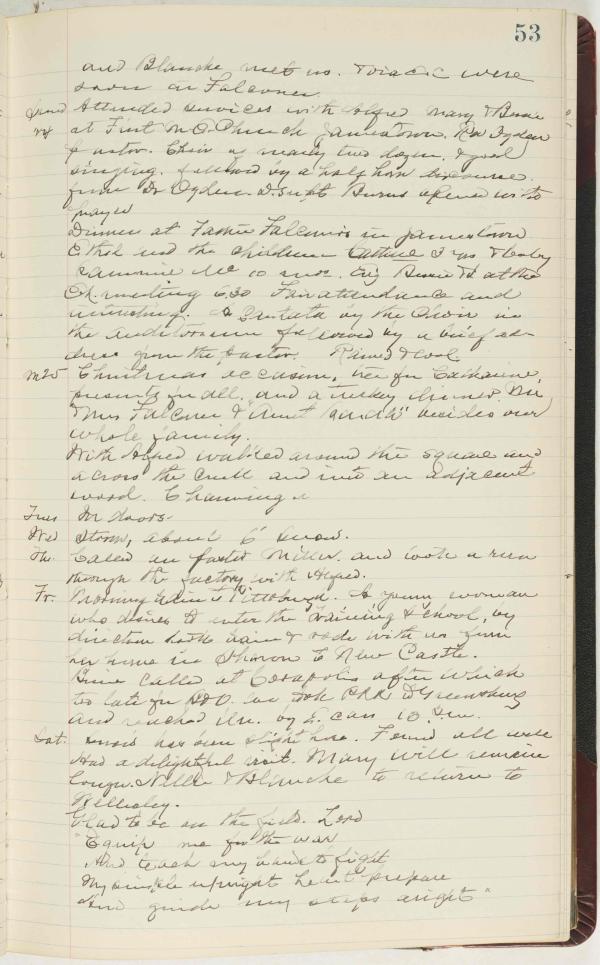 53
and Blanche met us. were
soon in Falconer.
Attended services with Alfred Mary & Bessie
at First M. E. Church Jamestown. Rev Ogden
pastor. Choir of nearly two dozen. & good
singing. followed by a half hour discourse.
from Dr Ogden. D. Supt. Burns opened with
prayer
Dinner at Father Falconer's in Jamestown
Ethel and the children Cathne
10 mos. Bessie at the
Ch. meeting 6.30 Fair attendance and
interesting. A Cantata by the Choir in
the auditorium followed by a brief ad-
dress from the pastor. Rained & cool
M 25 Christmas occasion, tree for Catharine,
presents for all. and a turkey dinner. Mr
& Mrs Falconer & Aunt besides our
whole family.
With Alfred walked around the square and
across the creek and into an adjacent
wood. Charming
Tues In doors-
Wed Storm, about 6" snow.
Th. Called on pastor Miller. and took a run
through the factory with Alfred.
Fr. Morning train to Pittsburgh. A young woman
who desires to enter the Training School, by
direction took train & rode with us from
her home in Sharon to New Castle.
called at Coraopolis after which
too late for B&O. we took PRR to Greensburg
and reached by car 10 P.m.
Sat. has been slight here. Found all well
Had a delightful visit. Mary will remain
longer. Nellie & Blanche to return to
Wellesley.
Glad to be on the field. Lord
"Equip me for the war
And teach my hands to fight
My simple upright heart prepare
And guide my steps aright"